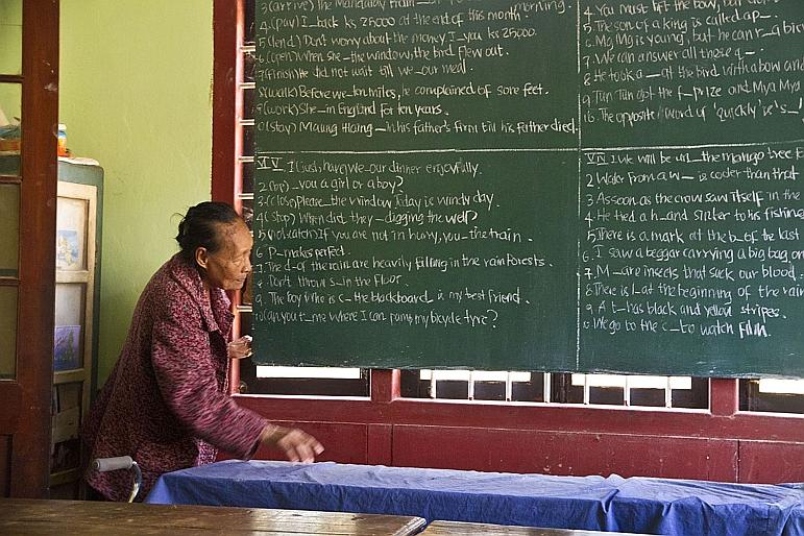 3 (arrive) The Mandalay train
4 (pay) I _ back ks 25000 at the end of this month.
5 (lend) Don't worry about the money I _ you ks 25000.
6 (open) When she _ the window, the bird flew out.
7 (finish) He did not wait till we _ our meal.
8 (walk) Before we _ ten miles, he complained of sore feet.
9 (work) She _ in England for ten years.
10 (stay) Maung Hlaing _ in his father's firm till his father died.
morning.
4. You must lift the box, but
5. The son of a king is called a p_.
6. Mg Mg is young, but he can r_ a bicy
7. We can answer all these q_.
8. He took a _ at the bird with a bow and
9. Tun Tun got the f_ prize and Mya Mya
10. The opposite word of 'quickly' is 's_
VI V. 1 (just, have) we _ our dinner enjoyfully.
2 (be) _ you a girl or a boy?
3. (close) please _ the window. Today is windy day.
4 (stop) When did they _ digging the well?
5 (not catch) If you are not in hurry, you _ the train.
6 P_ makes perfect.
7. The d_ of the rain are heavily falling in the rain forests.
8. Don't throw s_ in the floor.
9. The boy who is c_ the blackboard is my best friend.
10 Can you t_ me where I can pump my bicycle tyre?
VII 1. We will be un_ the mango tree f
2. Water from a w_ is cooler than that
3. As soon as the crow saw itself in the
4. He tied a h_ and sinker to his fishing
5. There is a mark at the b_ of the last
6. I saw a beggar carrying a big bag on
7. M_ are insects that suck our blood.
8. There is l_ at the beginning of the rain
9. A t_ has black and yellow stripes.
10. We go to the c_ to watch film.